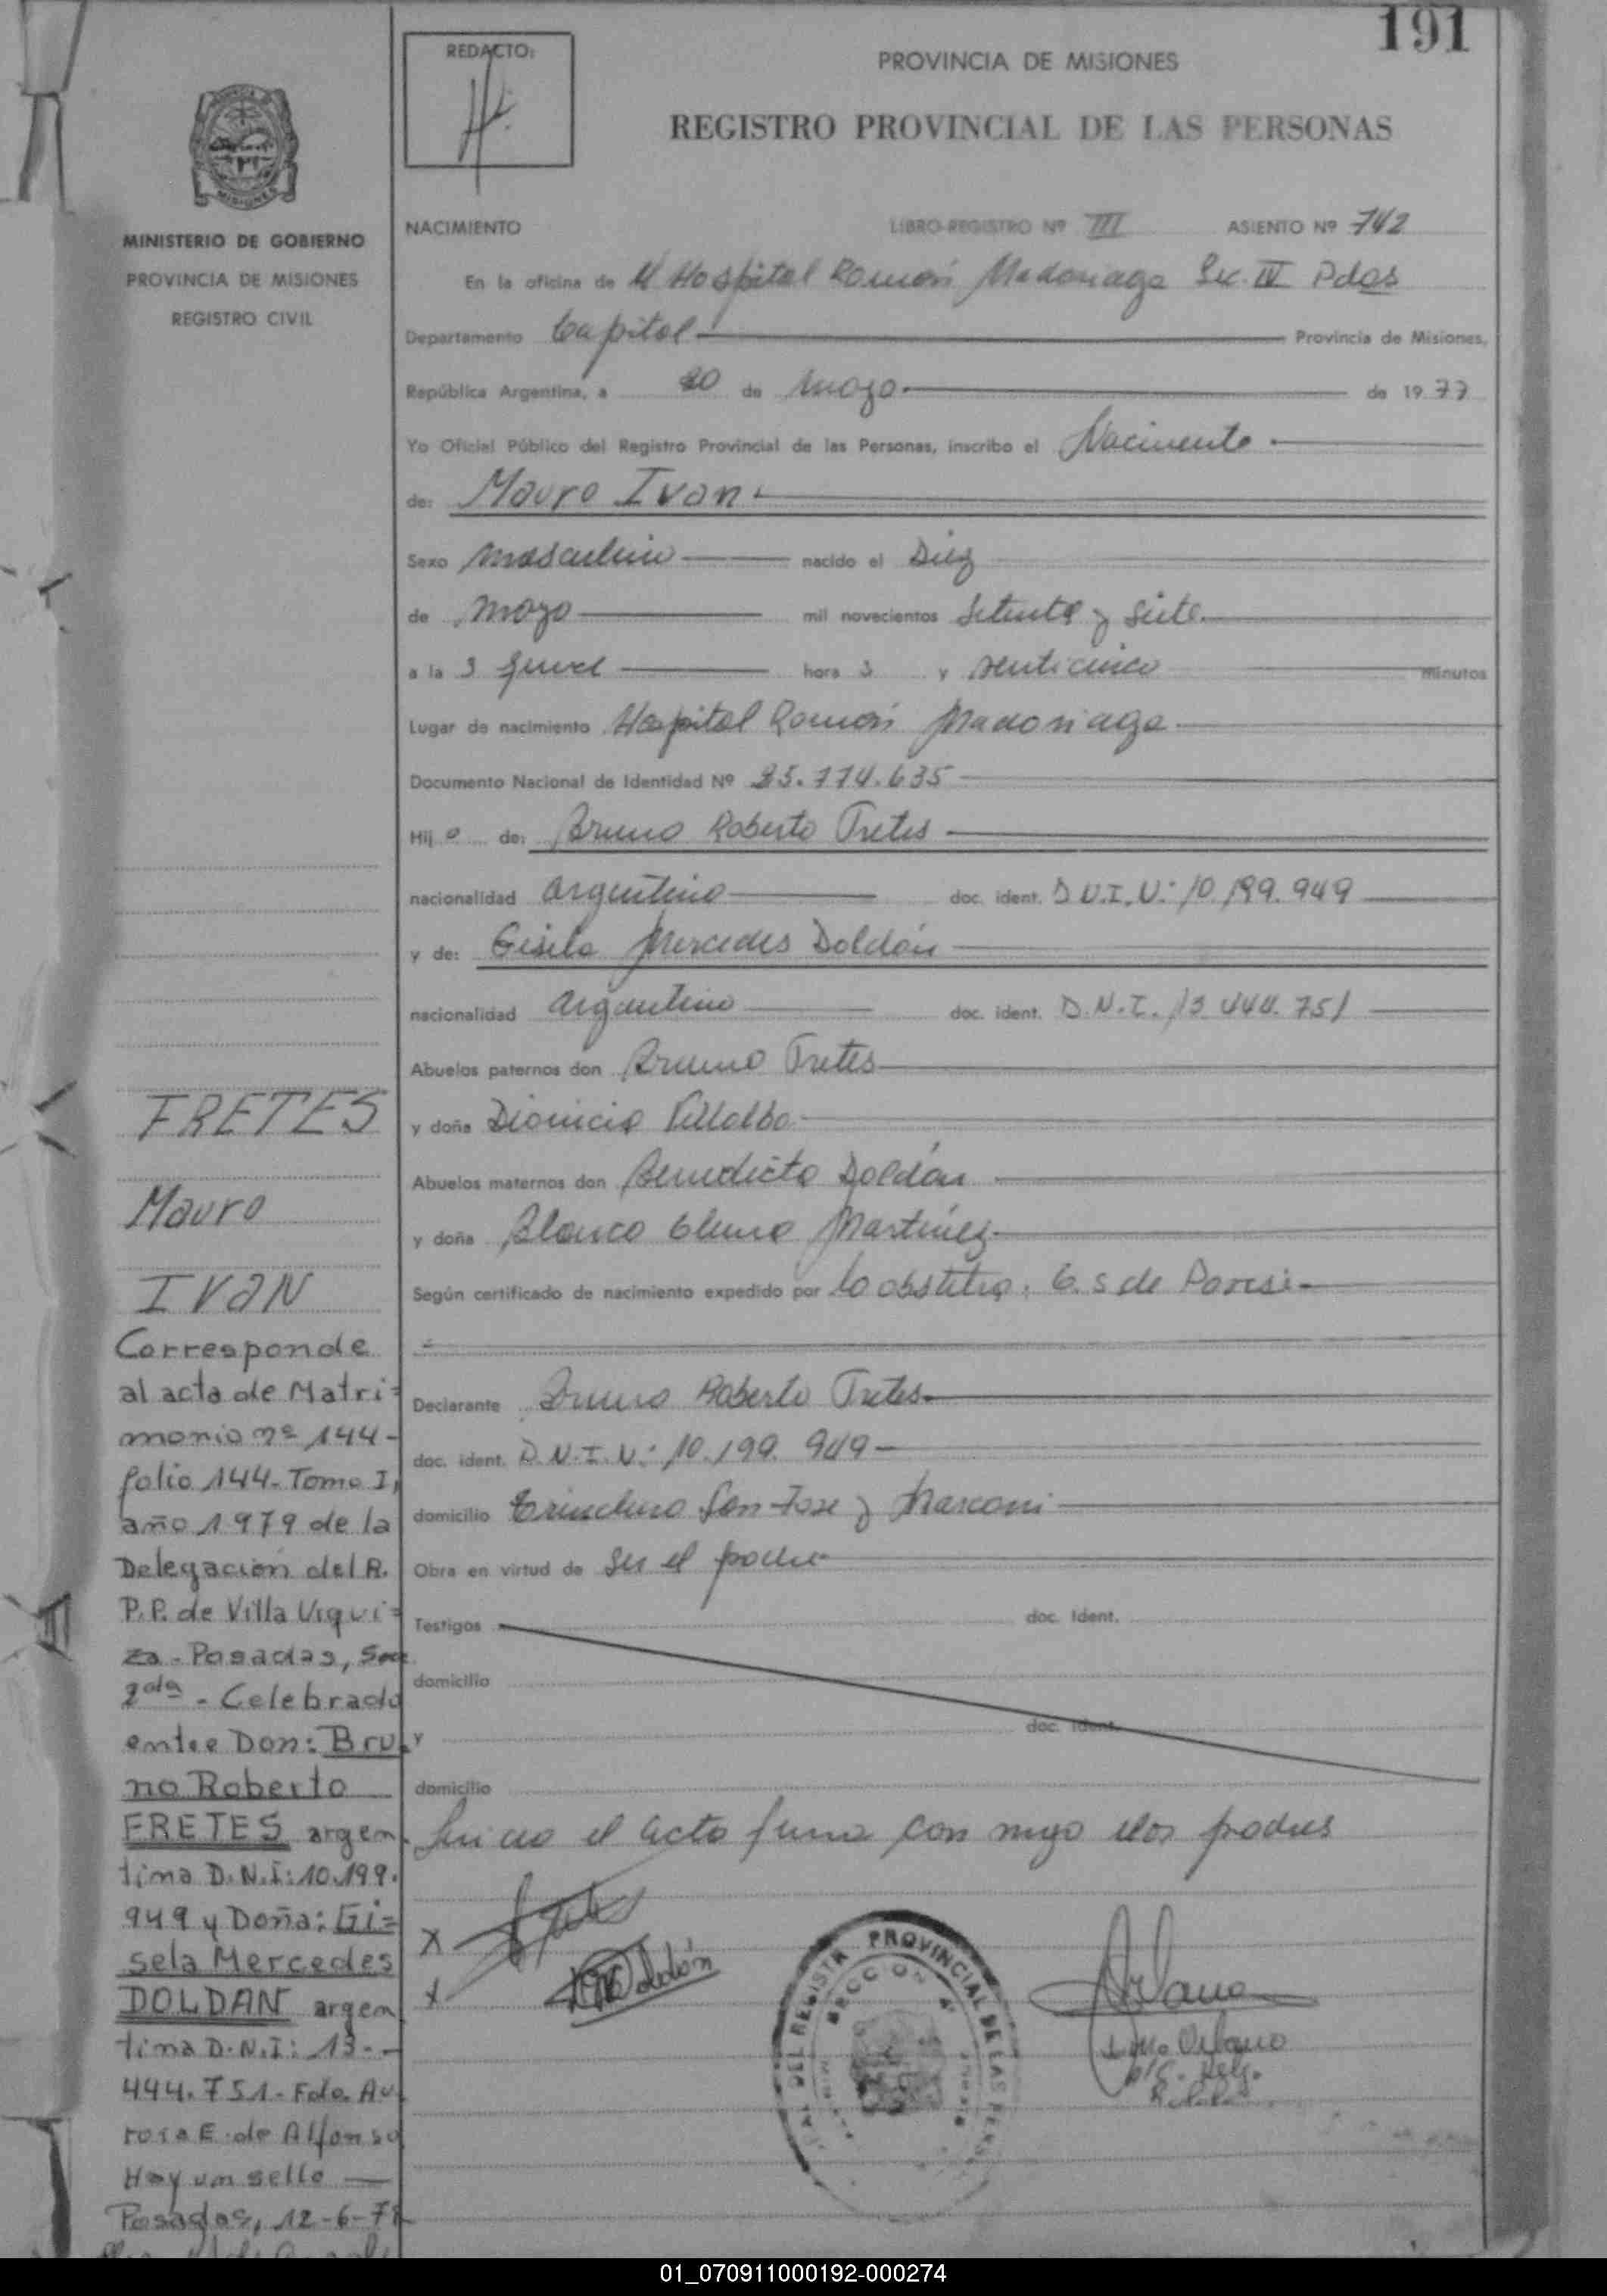 191
REDACTO:
PROVINCIA DE MISIONES
REGISTRO PROVINCIAL DE LAS PERSONAS
MINISTERIO DE GOBIERNO
PROVINCIA DE MISIONES
REGISTRO CIVIL
NACIMIENTO LIBRO-REGISTRO Nº III ASIENTO Nº 742
En la oficina de Hospital Ramón Madariaga Sec. IV Pdas
Departamento Capital Provincia de Misiones,
República Argentina, a 20 de mayo de 1977
Yo Oficial Público del Registro Provincial de las Personas, inscribo el Nacimento
de: Mauro Ivan
Sexo masculino nacido el Diez
de mayo mil novecientos setenta y siete
a la hora 3 y venticinco minutos
Lugar de nacimiento Hospital Ramón Madariaga
Documento Nacional de Identidad Nº 25.774.635
Hijo de: Bruno Roberto Fretes
nacionalidad argentino doc. ident. D.N.I. Nº 10.199.949
y de: Gisela Mercedes Doldán
nacionalidad argentina doc. ident. D.N.I. 13.444.751
Abuelos paternos don Bruno Fretes
y doña Dionicia Villalba
Abuelos maternos don Benedicto Doldán
y doña Blanca Elena Martínez
Según certificado de nacimiento expedido por la obstetra: C. S de Paresi
Declarante Bruno Roberto Fretes
doc. ident. D.N.I. Nº 10.199.949
domicilio San Jose y Marconi
Obra en virtud de ser el padre
Testigos doc. Ident.
domicilio
y doc. Ident.
domicilio
el acta firma con migo los padres
X
X Doldón
DEL REGISTR PROVINCIAL DE LAS PERS
Urbano
Urbano
FRETES
Mauro
IVAN
Corresponde
al acta de Matri=
monio nº 144-
folio 144-Tomo I,
año 1979 de la
Delegación del R.
P.P. de Villa Urqui=
za - Posadas, Sec.
2da - Celebrado
entre Don: Bru
no Roberto
FRETES argen
tina D.N.I: 10.199.
949 y Doña: Gi=
sela Mercedes
DOLDAN argen
tina D.N.I: 13.-
444.751.- Fdo. Au
rora E. de Alfonso
Hay un sello
Posadas, 12-6-79
01_070911000192-000274